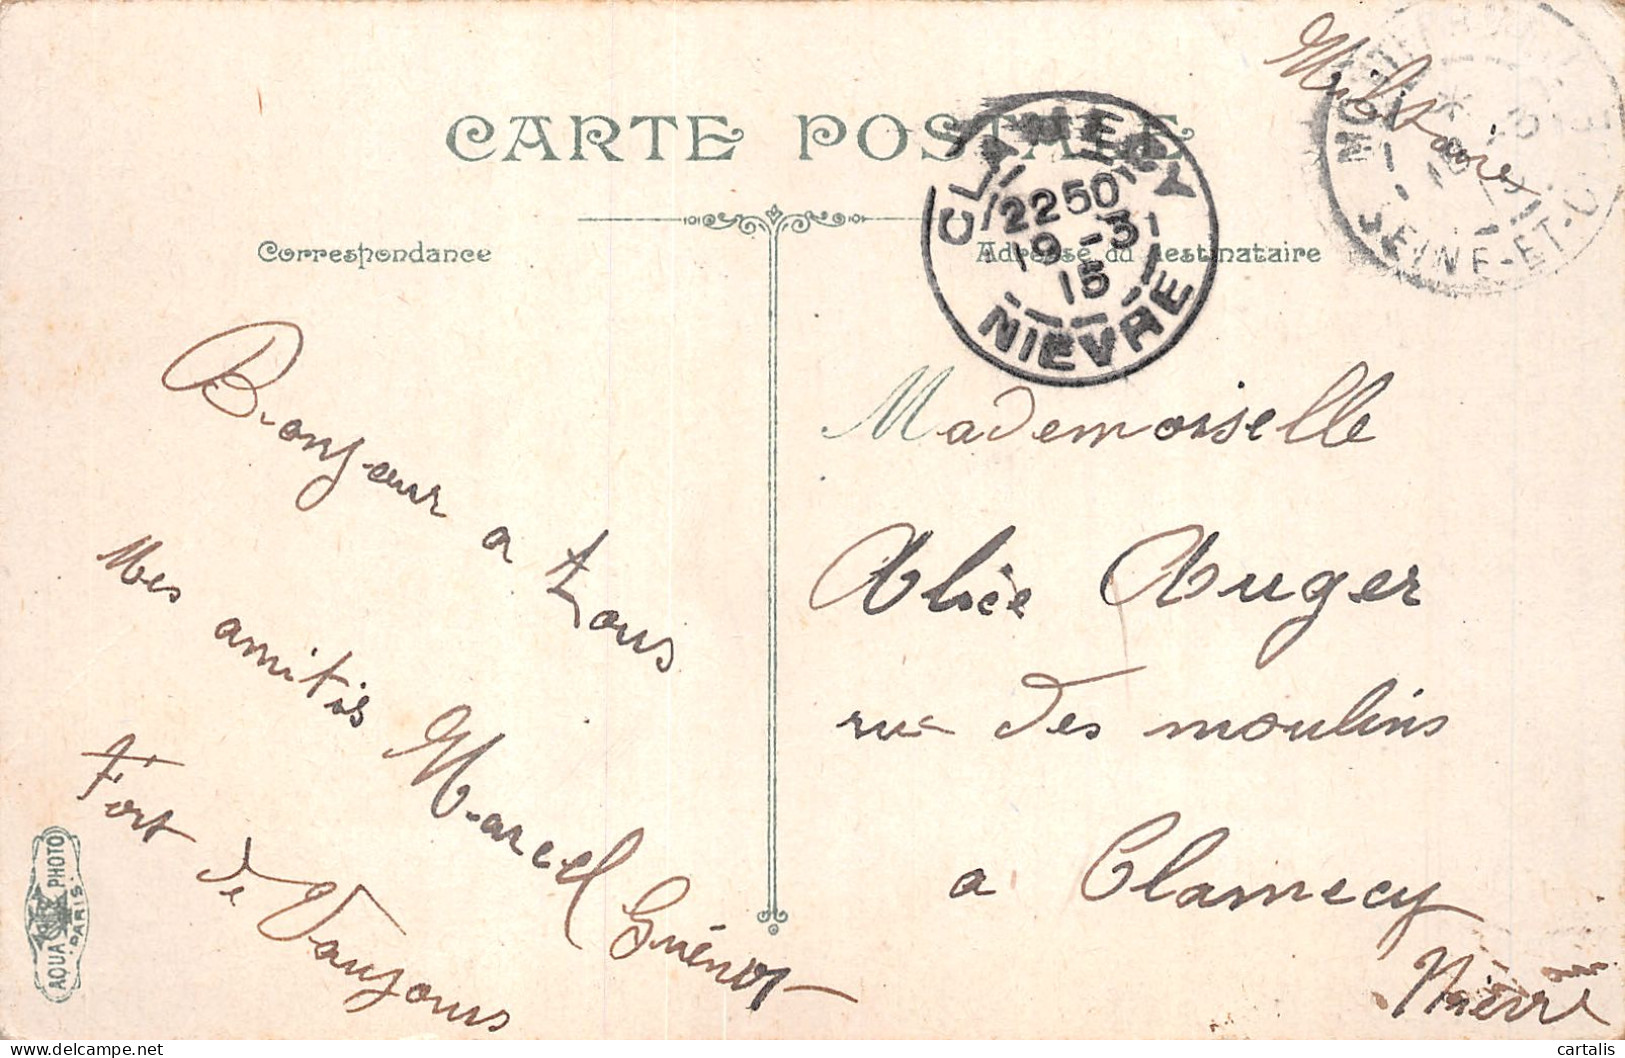 CARTE POSTALE
Correspondance
Adresse du destinataire
Militaire
CLAMECY
22 50
19 - 3
15
NIÈVRE
SEINE-ET-O
Bonjour a tous
Mes amitiés Marcel Guénot
Fort de Vaujours
Mademoiselle
Alice Auger
rue des moulins
a Clamecy
Nièvre
AQUA PHOTO
PARIS.
cartalis